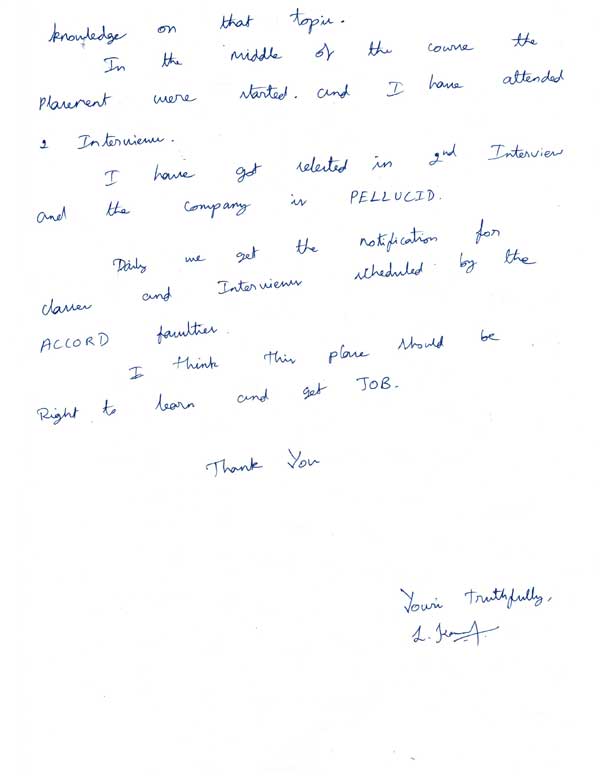 knowledge on that topic.
In the middle of the course the
Placement were started. and I have attended
2 Interviews.
I have got selected in 2nd Interview
and the company is PELLUCID.
Daily we get the notification for
classes and Interviews scheduled by the
ACCORD faculties.
I think this place should be
Right to learn and get JOB.
Thank You
Your's truthfully,
L.